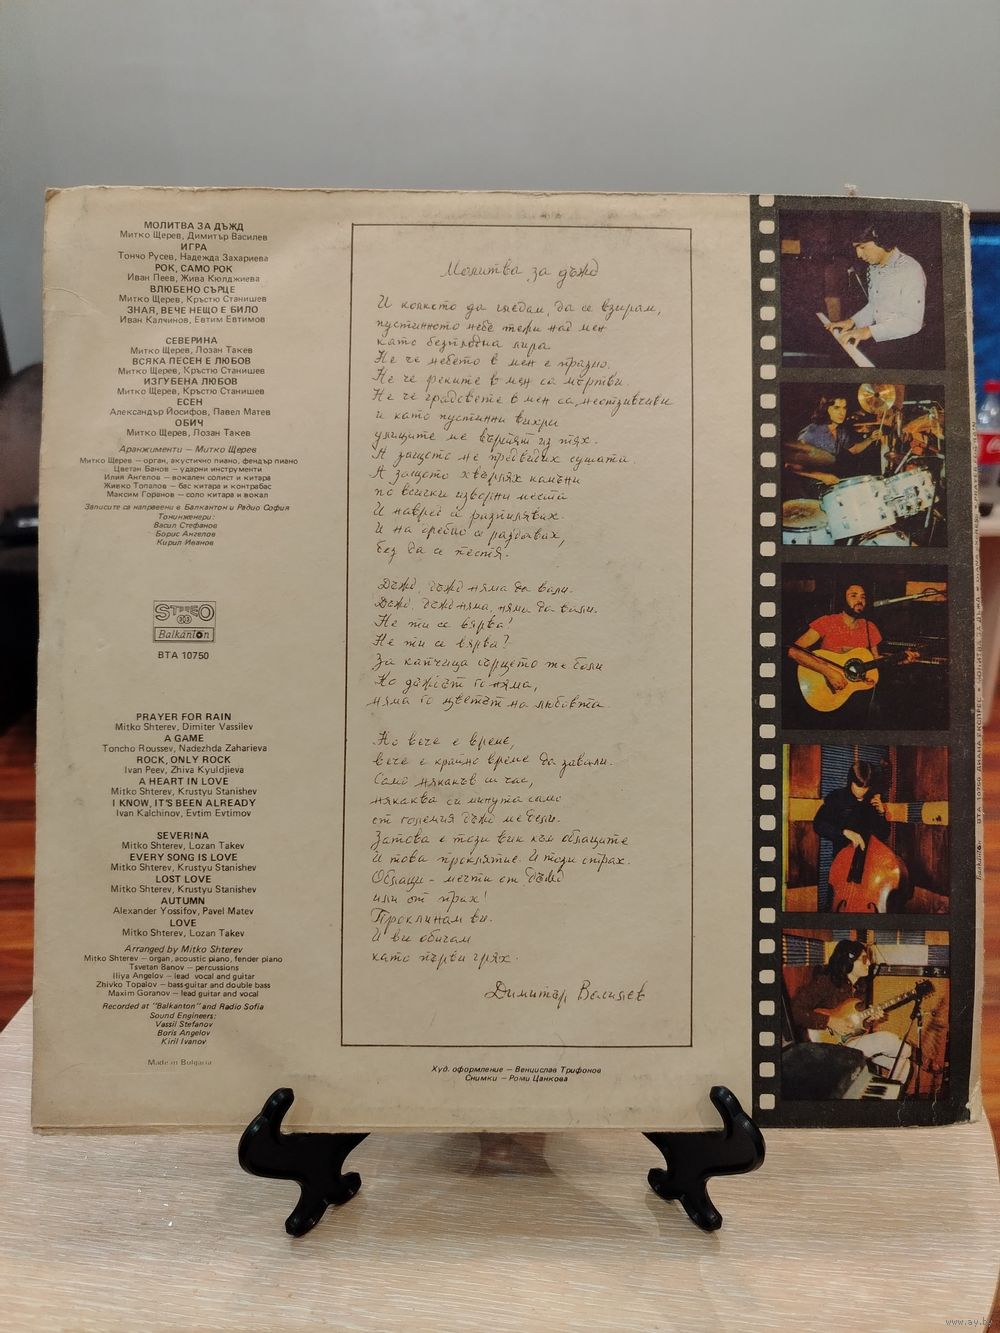 МОЛИТВА ЗА ДЪЖД
Митко Щерев, Димитър Василев
ИГРА
Тончо Русев, Надежда Захариева
РОК, САМО РОК
Иван Пеев, Жива Кюлджиева
ВЛЮБЕНО СЪРЦЕ
Митко Щерев, Кръстю Станишев
ЗНАЯ, ВЕЧЕ НЕЩО Е БИЛО
Иван Калчинов, Евтим Евтимов
СЕВЕРИНА
Митко Щерев, Лозан Такев
ВСЯКА ПЕСЕН Е ЛЮБОВ
Митко Щерев, Кръстю Станишев
ИЗГУБЕНА ЛЮБОВ
Митко Щерев, Кръстю Станишев
ЕСЕН
Александър Йосифов, Павел Матев
ОБИЧ
Митко Щерев, Лозан Такев
Аранжименти — Митко Щерев
Митко Щерев — орган, акустично пиано, фендър пиано
Цветан Банов — ударни инструменти
Илия Ангелов — вокален солист и китара
Живко Топалов — бас китара и контрабас
Максим Горанов — соло китара и вокал
Записите са направени в Балкантон и Радио София
Тонинженери:
Васил Стефанов
Борис Ангелов
Кирил Иванов
STEREO
33
Balkanton
ВТА 10750
PRAYER FOR RAIN
Mitko Shterev, Dimiter Vassilev
A GAME
Toncho Roussev, Nadezhda Zaharieva
ROCK, ONLY ROCK
Ivan Peev, Zhiva Kyuldjieva
A HEART IN LOVE
Mitko Shterev, Krustyu Stanishev
I KNOW, IT'S BEEN ALREADY
Ivan Kalchinov, Evtim Evtimov
SEVERINA
Mitko Shterev, Lozan Takev
EVERY SONG IS LOVE
Mitko Shterev, Krustyu Stanishev
LOST LOVE
Mitko Shterev, Krustyu Stanishev
AUTUMN
Alexander Yossifov, Pavel Matev
LOVE
Mitko Shterev, Lozan Takev
Arranged by Mitko Shterev
Mitko Shterev — organ, acoustic piano, fender piano
Tsvetan Banov — percussions
Iliya Angelov — lead vocal and guitar
Zhivko Topalov — bass guitar and double bass
Maxim Goranov — lead guitar and vocal
Recorded at "Balkanton" and Radio Sofia
Sound Engineers:
Vassil Stefanov
Boris Angelov
Kiril Ivanov
Made in Bulgaria
Молитва за дъжд
И колкото да гледам, да се взирам,
пустинното небе тежи над мен
като безплодна лира.
Не че небето в мен е празно.
Не че реките в мен са мъртви.
Не че градовете в мен са неотзивчиви
и като пустинни вихри
улиците ме въртят из тях.
А защото не предвидих сушата.
А защото хвърлях камъни
по всички изворни места
И навред се разпилявах.
И на дребно се раздавах,
без да се пестя.
Дъжд, дъжд няма да вали.
Дъжд, дъжд няма, няма да вали.
Не ти се вярва?
Не ти се вярва?
За капчица сърцето ме боли
Но дъждът го няма,
няма го цветът на любовта.
Но вече е време,
вече е крайно време да завали.
Само някакъв си час,
някаква си минута само
от големия дъжд ме дели.
Затова е този вик към облаците
И това проклятие. И този страх.
Облаци - мечти от дъжд
или от прах!
Проклинам ви.
И ви обичам
като първи грях.
Димитър Василев
Худ. оформление — Венцислав Трифонов
Снимки — Роми Цанкова
Balkanton ВТА 10750 ДИАНА ЕКСПРЕС • МОЛИТВА ЗА ДЪЖД
www.ay.by